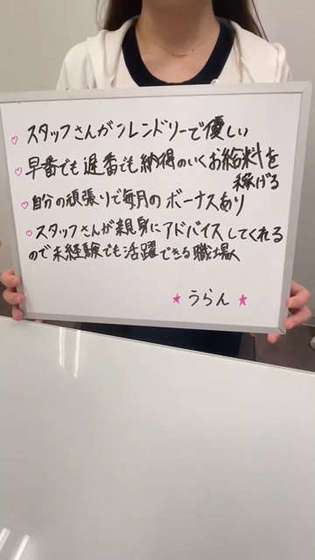 ♡ スタッフさんがフレンドリーで優しい
♡ 早番でも遅番でも納得のいくお給料を
稼げる
♡ 自分の頑張りで毎月のボーナスあり
♡ スタッフさんが親身にアドバイスしてくれる
ので未経験でも活躍できる職場
★ うらん ★